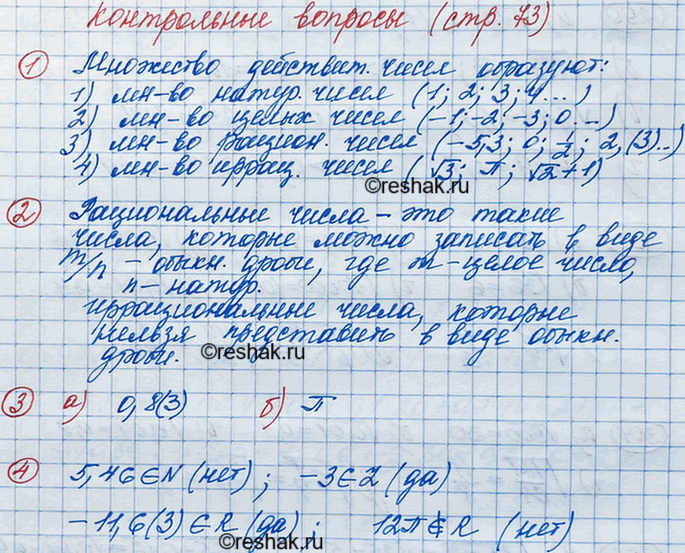 Контрольные вопросы (стр. 73)
1 Множество действит. чисел образуют:
1) мн-во натур. чисел (1; 2; 3; 4...)
2) мн-во целых чисел (-1; -2; -3; 0...)
3) мн-во рацион. чисел (-5,3; 0; 1/2; 2,(3)...)
4) мн-во иррац. чисел (√3; π; √2+1)
©reshak.ru
2 Рациональные числа – это такие
числа, которые можно записать в виде
m/n – обыкн. дроби, где m – целое число,
n – натур.
иррациональные числа, которые
нельзя представить в виде обыкн.
дроби.
©reshak.ru
3 а) 0,8(3) б) π
4 5,46 ∈ N (нет); -3 ∈ Z (да)
-11,6(3) ∈ R (да); 12π ∉ R (нет)
©reshak.ru